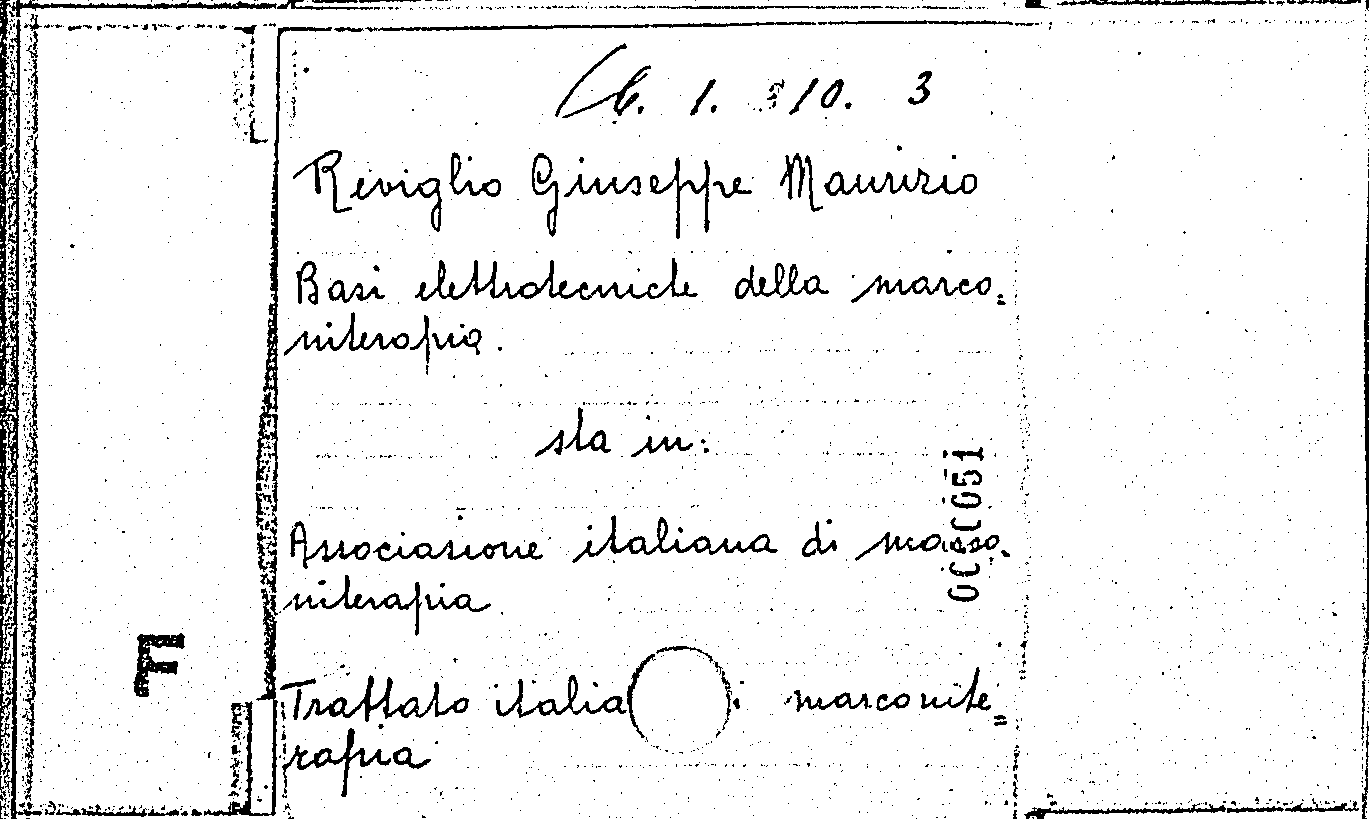 6. 1. 10. 3
Reviglio Giuseppe Maurizio
Basi elettrotecniche della marco=
niterapia.
sta in:
Associazione italiana di marco=
niterapia
Trattato italia i marconite=
rapia
F